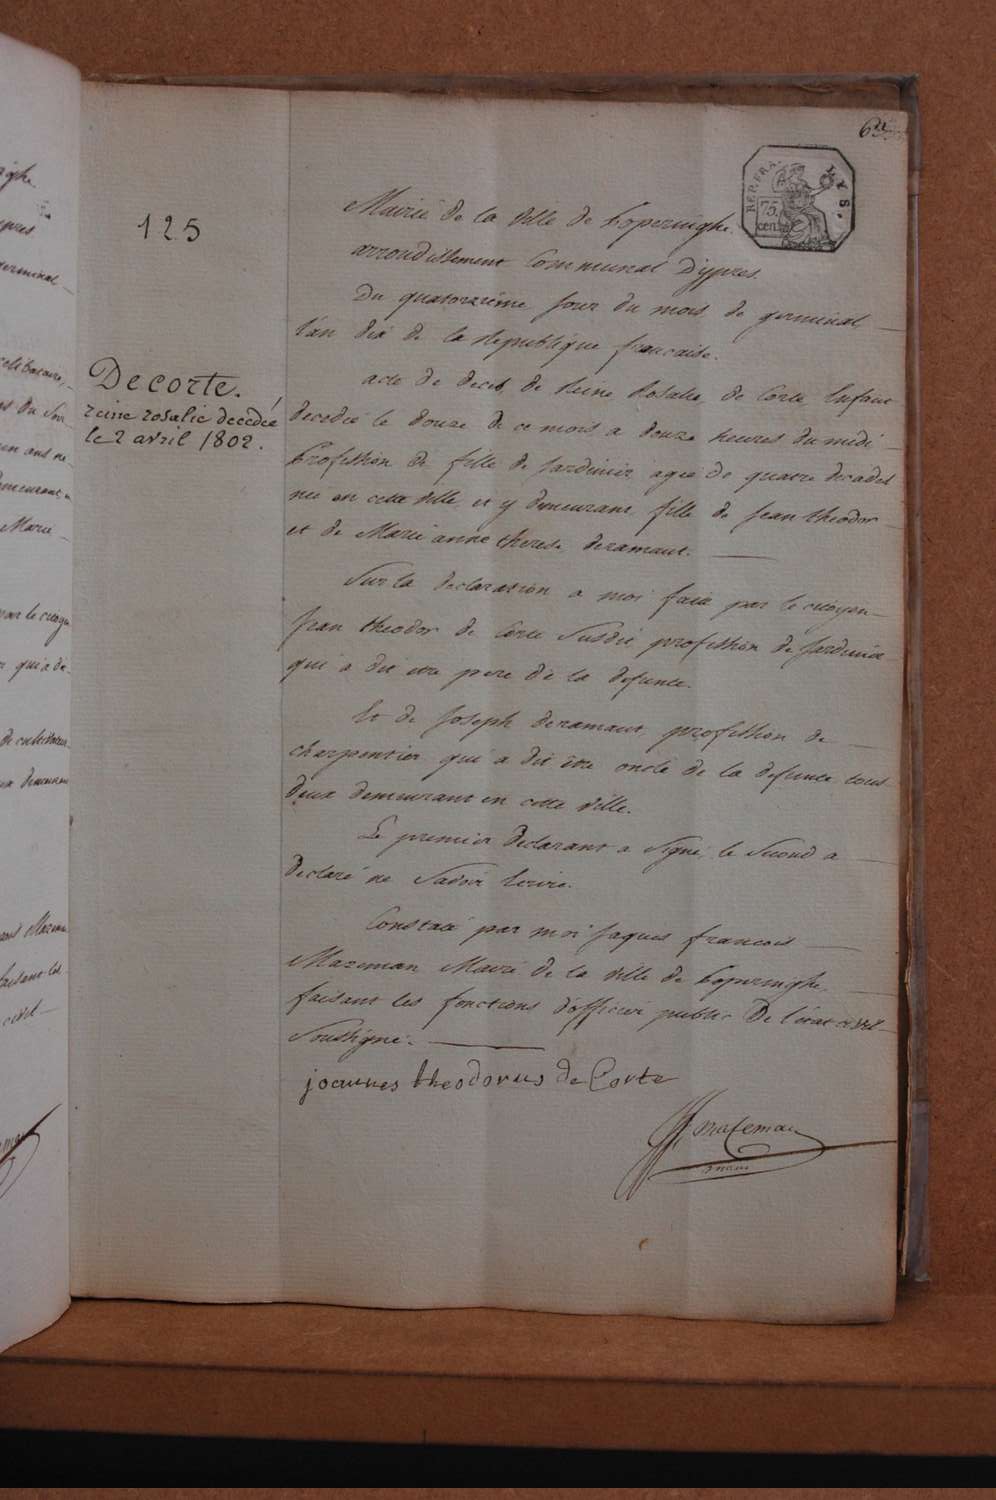 125
Decorte.
reine rosalie decedée
le 2 avril 1802.
REP. FRA.
75.
cent
LYS.
Mairie de la ville de poperinghe.
arrondissement Communal D'ypres.
Du quatorzieme jour du mois de germinal
l'an dix de la republique francaise.
acte de deces de Reine Rosalie de Corte Enfant
decedée le douze de ce mois a douze heures du midi
profession de fille de jardinier agée de quatre decades
née en cette ville et y demeurant fille de jean theodor
et de Marie anne therese deramaut.
Sur la declaration a moi faite par le citoyen
jean theodor de Corte Susdit profession de jardinier
qui a dit etre pere de la defunte.
Et de joseph deramaut profession de
charpentier qui a dit être oncle de la defunte tous
deux demeurant en cette ville.
Le premier declarant a signé le second a
declaré ne Savoir Ecrire.
Constaté par moi jaques francois
Mazeman Maire de la ville de poperinghe,
faisant les fonctions d'officier public De l'état civil
Soussigné.
joannes theodorus de Corte
Mazeman